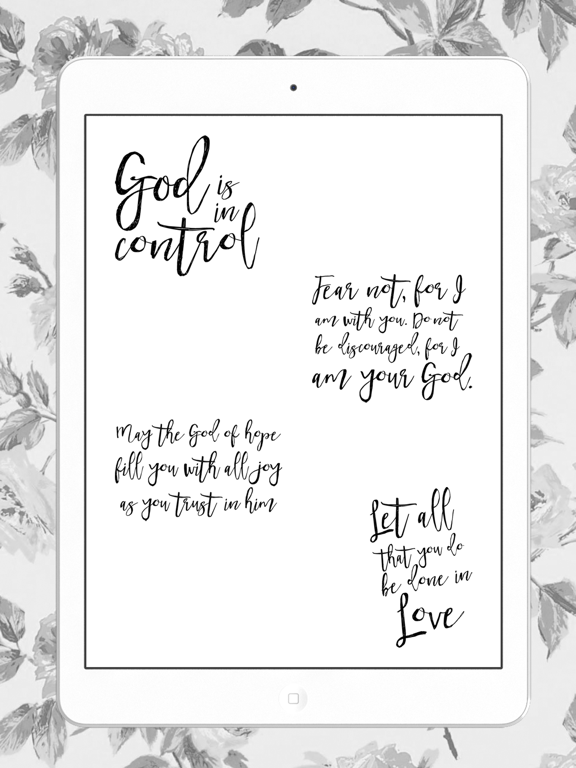 God is
in
control
Fear not, for I
am with you. Do not
be discouraged, for I
am your God.
May the God of hope
fill you with all joy
as you trust in him
Let all
that you do
be done in
Love